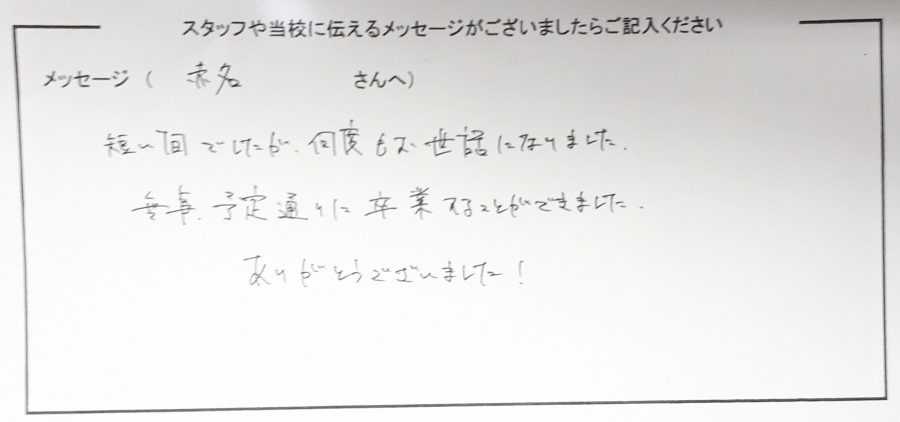 スタッフや当校に伝えるメッセージがございましたらご記入ください
メッセージ（ 赤名 さんへ）
短い間でしたが、何度もお世話になりました。
無事、予定通りに卒業することができました。
ありがとうございました！